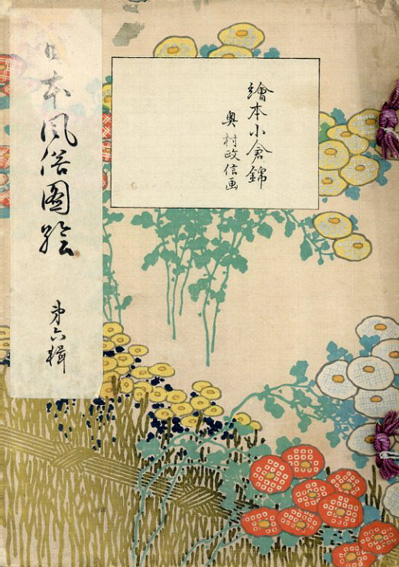 繪本小倉錦
奥村政信画
日本風俗圖絵
第六輯